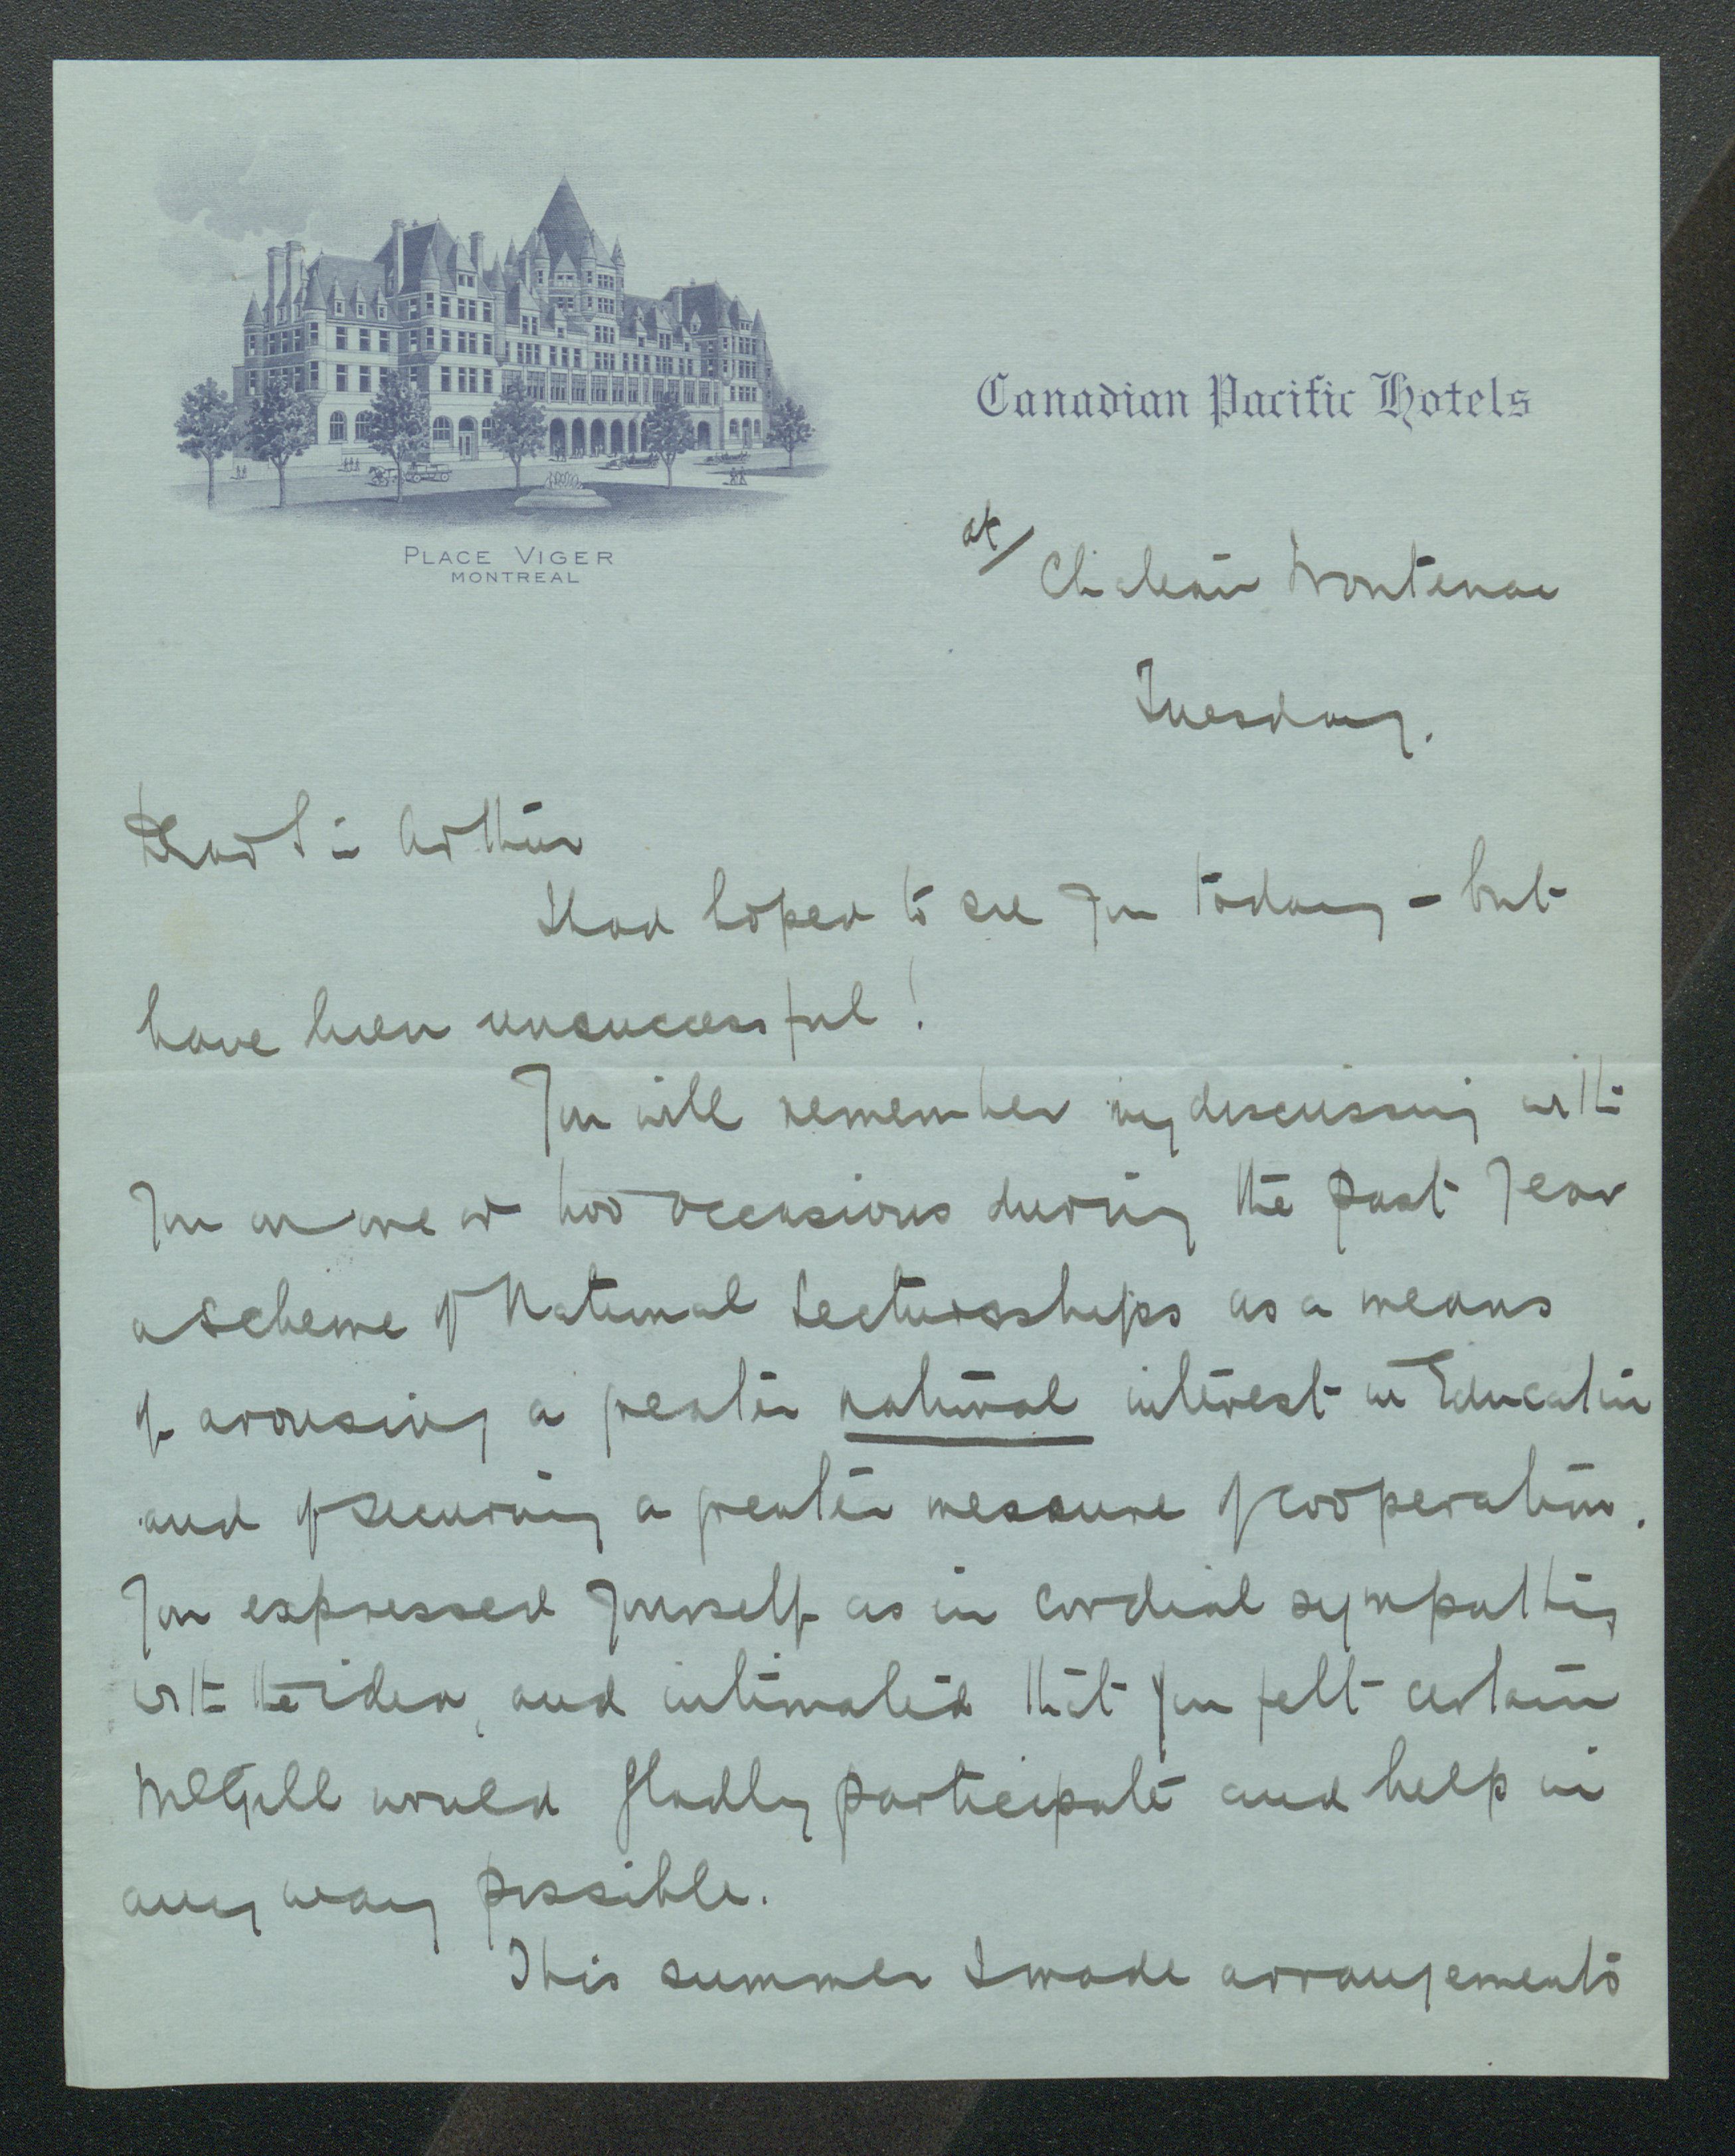 Canadian Pacific Hotels
PLACE VIGER
MONTREAL
at/ Chateau Frontenac
Tuesday.
Dear Sir Arthur
I had hoped to see you today – but
have been unsuccessful!
You will remember my discussing with
you on one or two occasions during the past year
a scheme of National Lectureships as a means
of arousing a greater national interest in Education
and of securing a greater measure of cooperation.
You expressed yourself as in cordial sympathy
with the idea, and intimated that you felt certain
McGill would gladly participate and help in
any way possible.
This summer I made arrangements